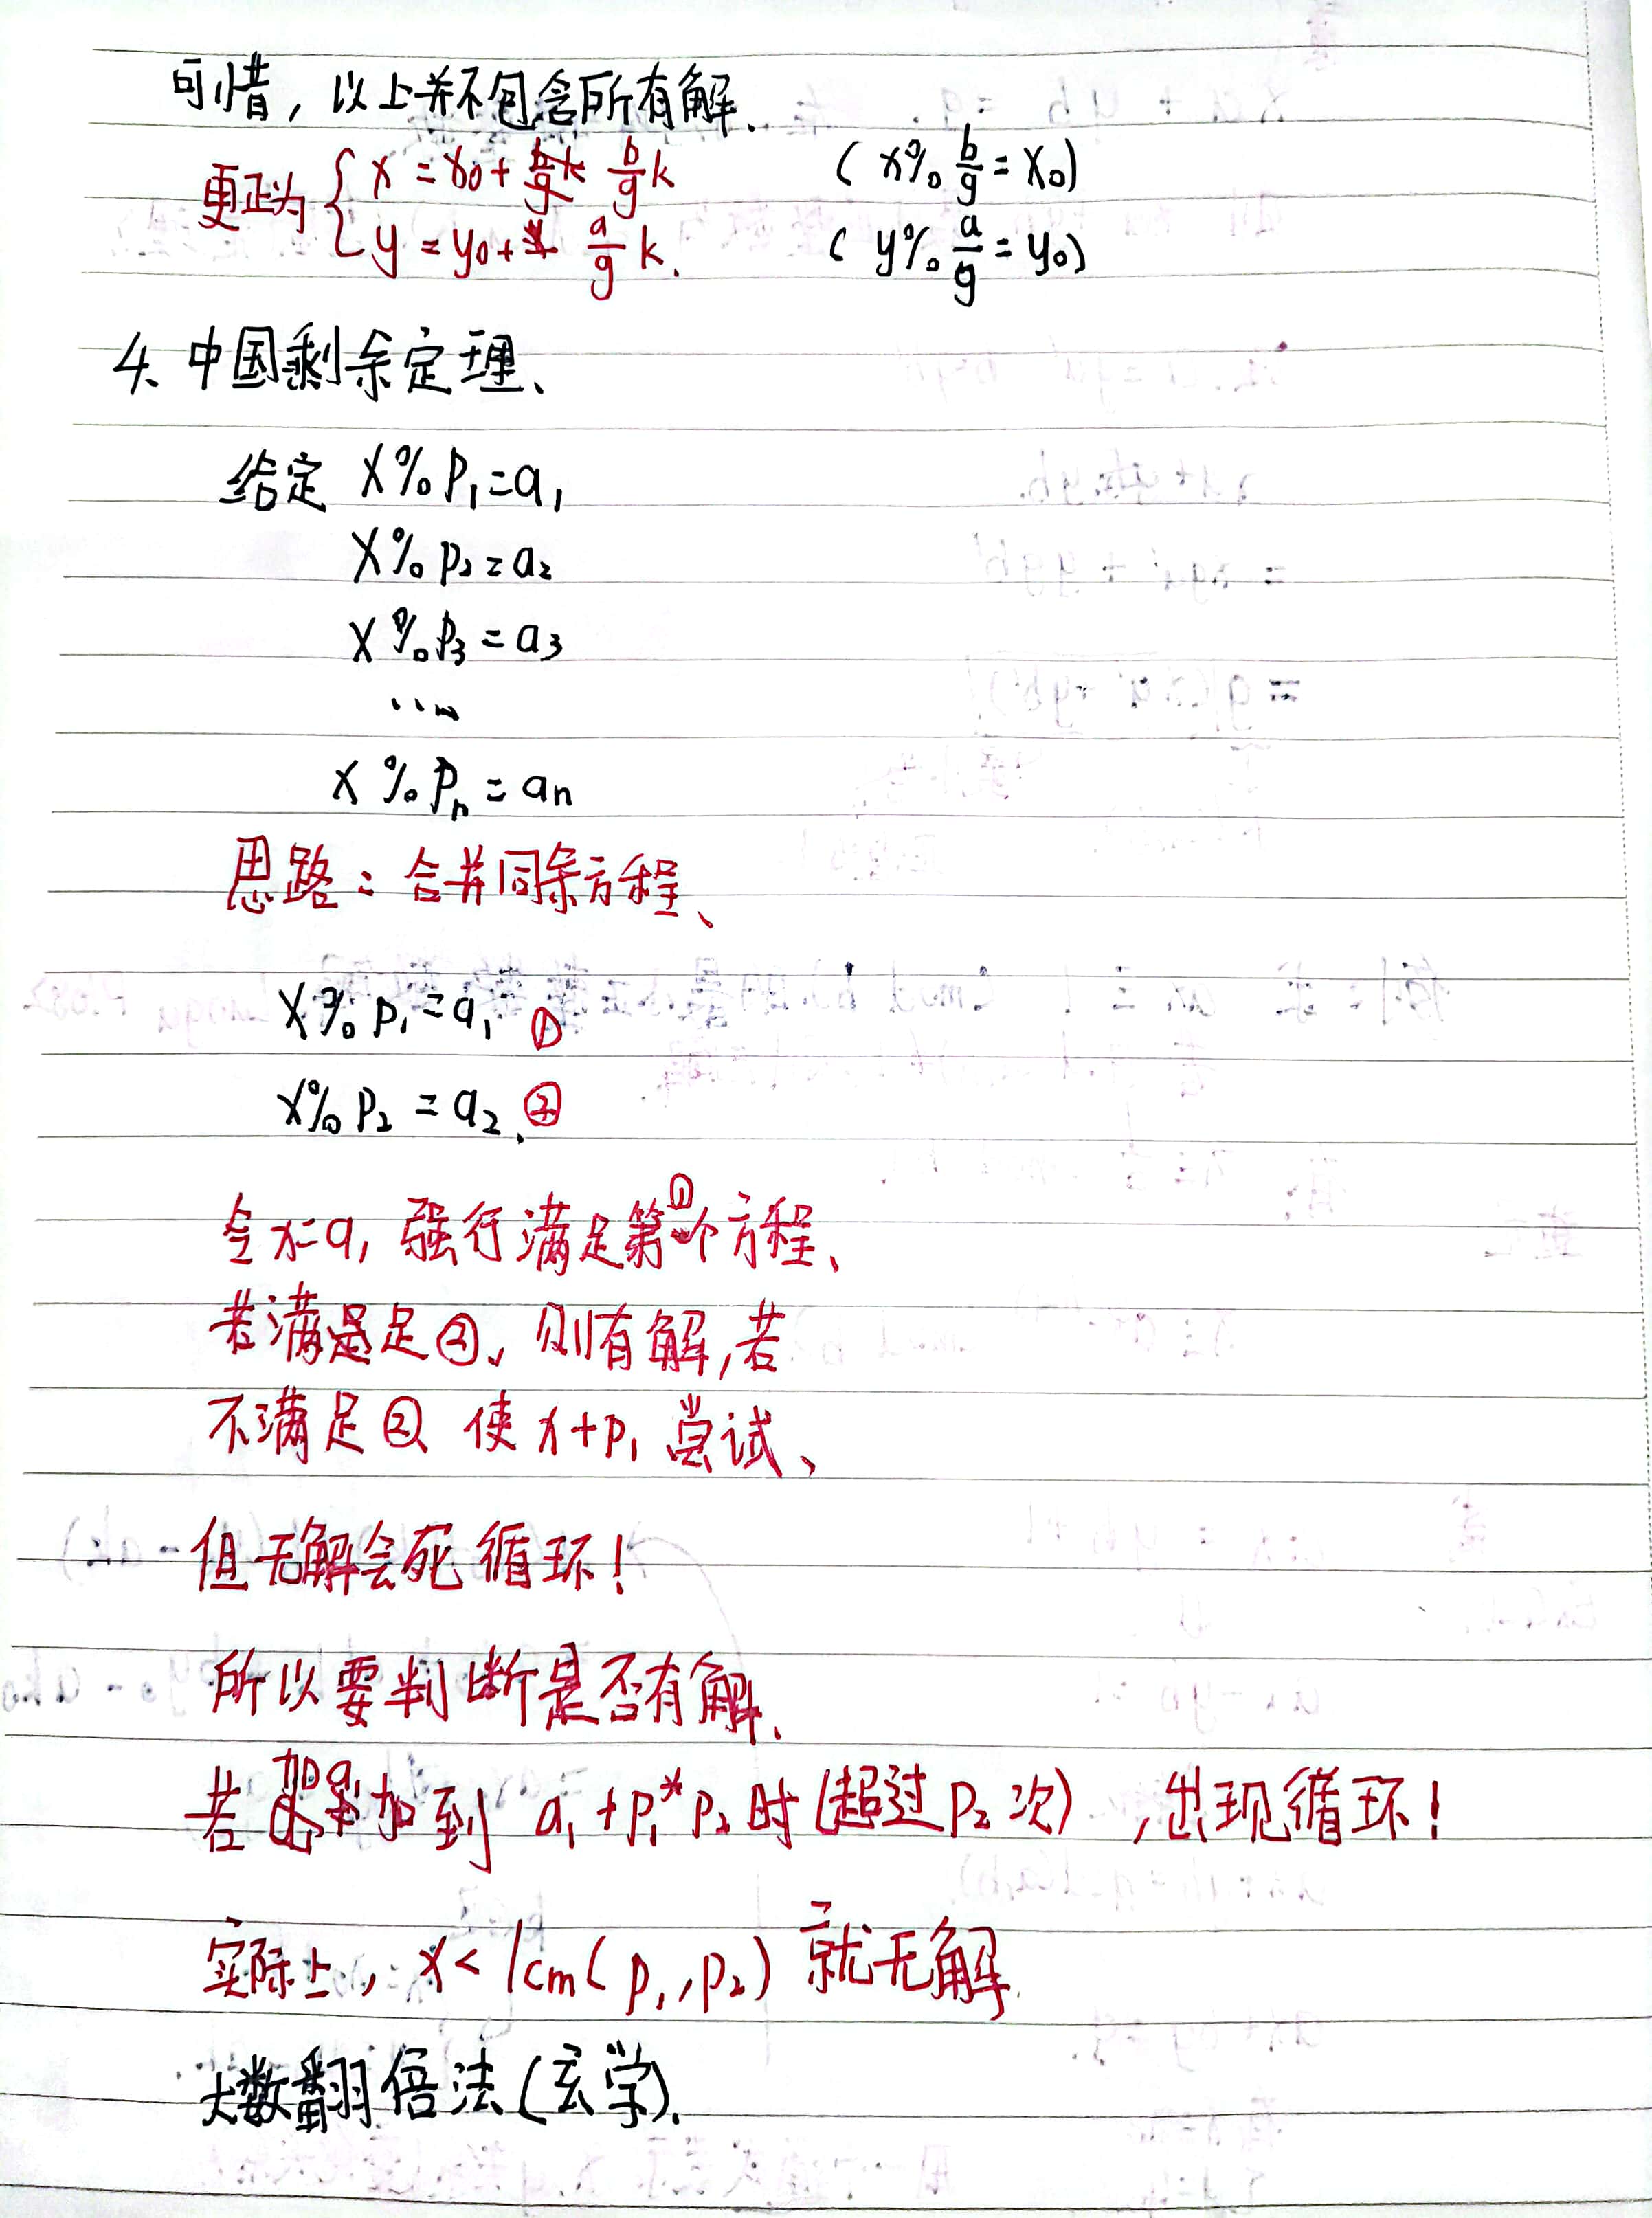 可惜，以上并不包含所有解、
更正为 { x = x0 + b/g k (x % b/g = x0)
y = y0 + a/g k. (y % a/g = y0)
4、中国剩余定理、
给定 x % p₁ = a₁
x % p₂ = a₂
x % p₃ = a₃
……
x % pₙ = aₙ
思路：合并同余方程、
x % p₁ = a₁ ①
x % p₂ = a₂. ②
令x=a₁ 强行满足第①个方程、
若满足②，则有解，若
不满足② 使x+p₁ 尝试、
但无解会死循环！
所以要判断是否有解、
若 加到 a₁+p₁*p₂时(超过p₂次)，出现循环！
实际上，x < lcm(p₁,p₂) 就无解.
大数翻倍法(玄学).